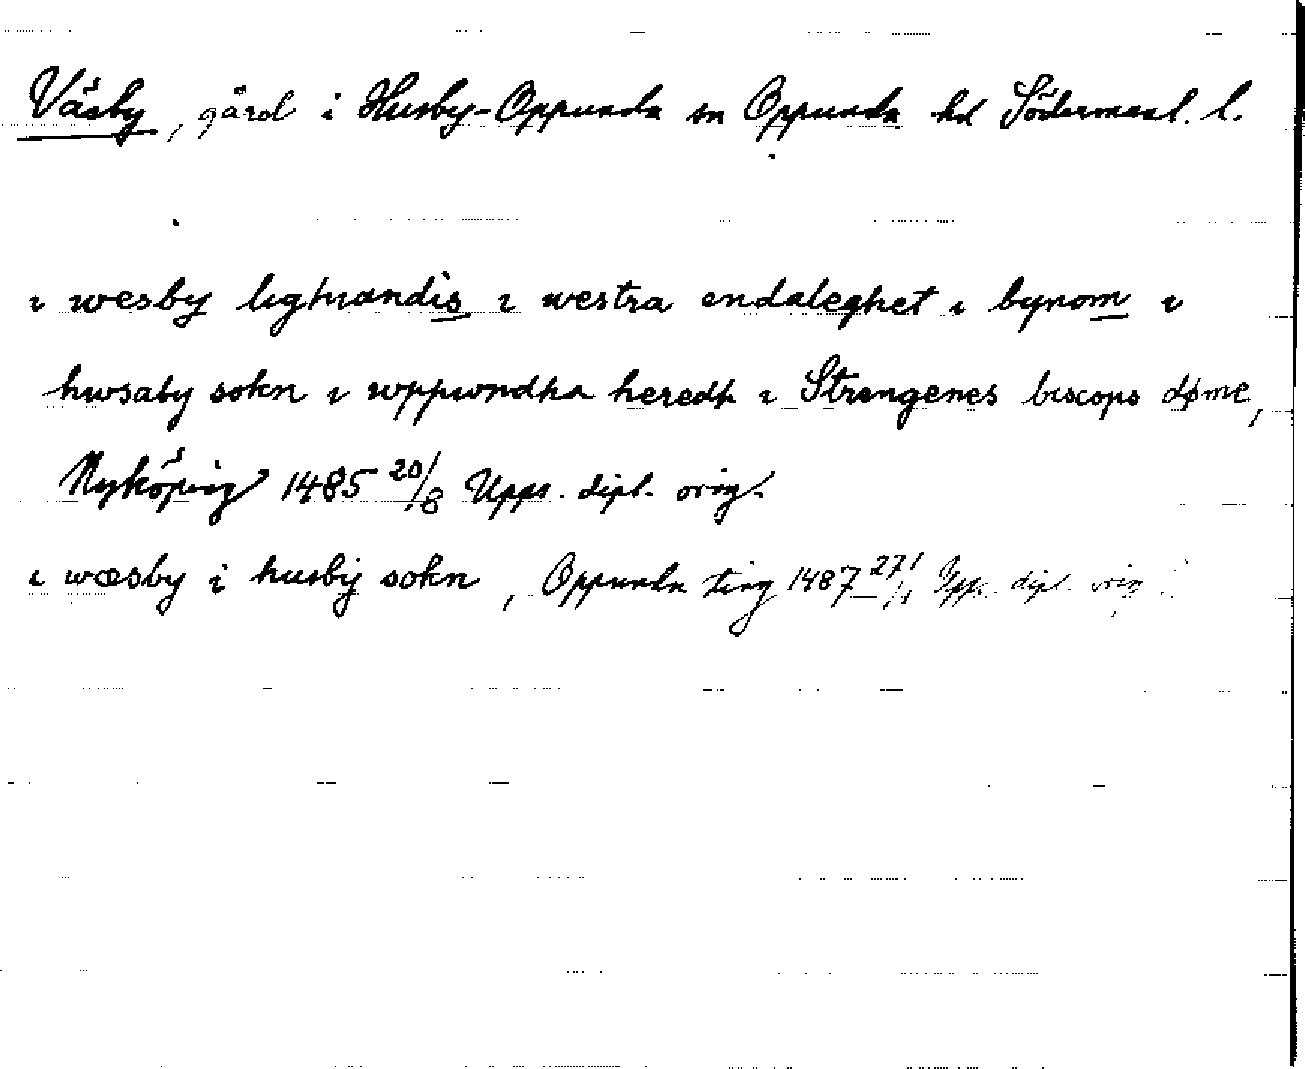 Väsby, gård i Husby-Oppunda sn Oppunda hd Södermanl. l.
i wesby lighiandis i westra endaleghet i bynom i
hwsaby sokn i wppwndha heredh i Strengenes biscops døme,
Nyköping 1485 20/8 Upps. dipl. orig.
i wæsby i husby sokn, Oppunda ting 1487 27/1 Upps. dipl. orig.